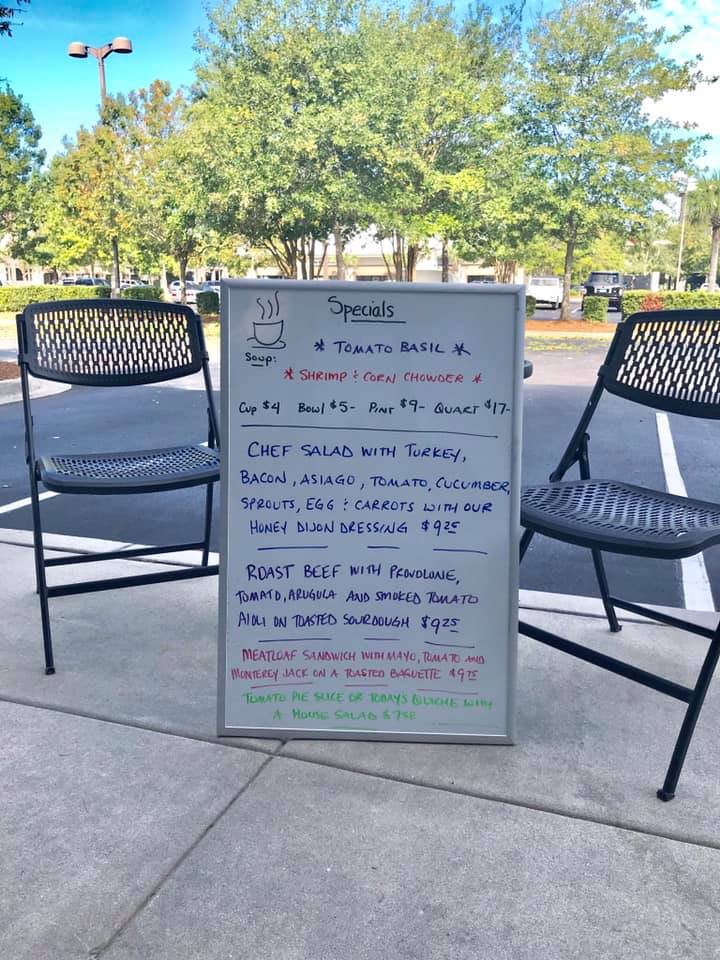 Specials
Soup:
* TOMATO BASIL *
* SHRIMP & CORN CHOWDER *
CUP $4 BOWL $5- PINT $9- QUART $17-
CHEF SALAD WITH TURKEY,
BACON, ASIAGO, TOMATO, CUCUMBER,
SPROUTS, EGG & CARROTS WITH OUR
HONEY DIJON DRESSING $9.25
ROAST BEEF WITH PROVOLONE,
TOMATO, ARUGULA AND SMOKED TOMATO
AIOLI ON TOASTED SOURDOUGH $9.25
MEATLOAF SANDWICH WITH MAYO, TOMATO AND
MONTEREY JACK ON A TOASTED BAGUETTE
TOMATO PIE SLICE OR TODAY'S QUICHE WITH
A HOUSE SALAD